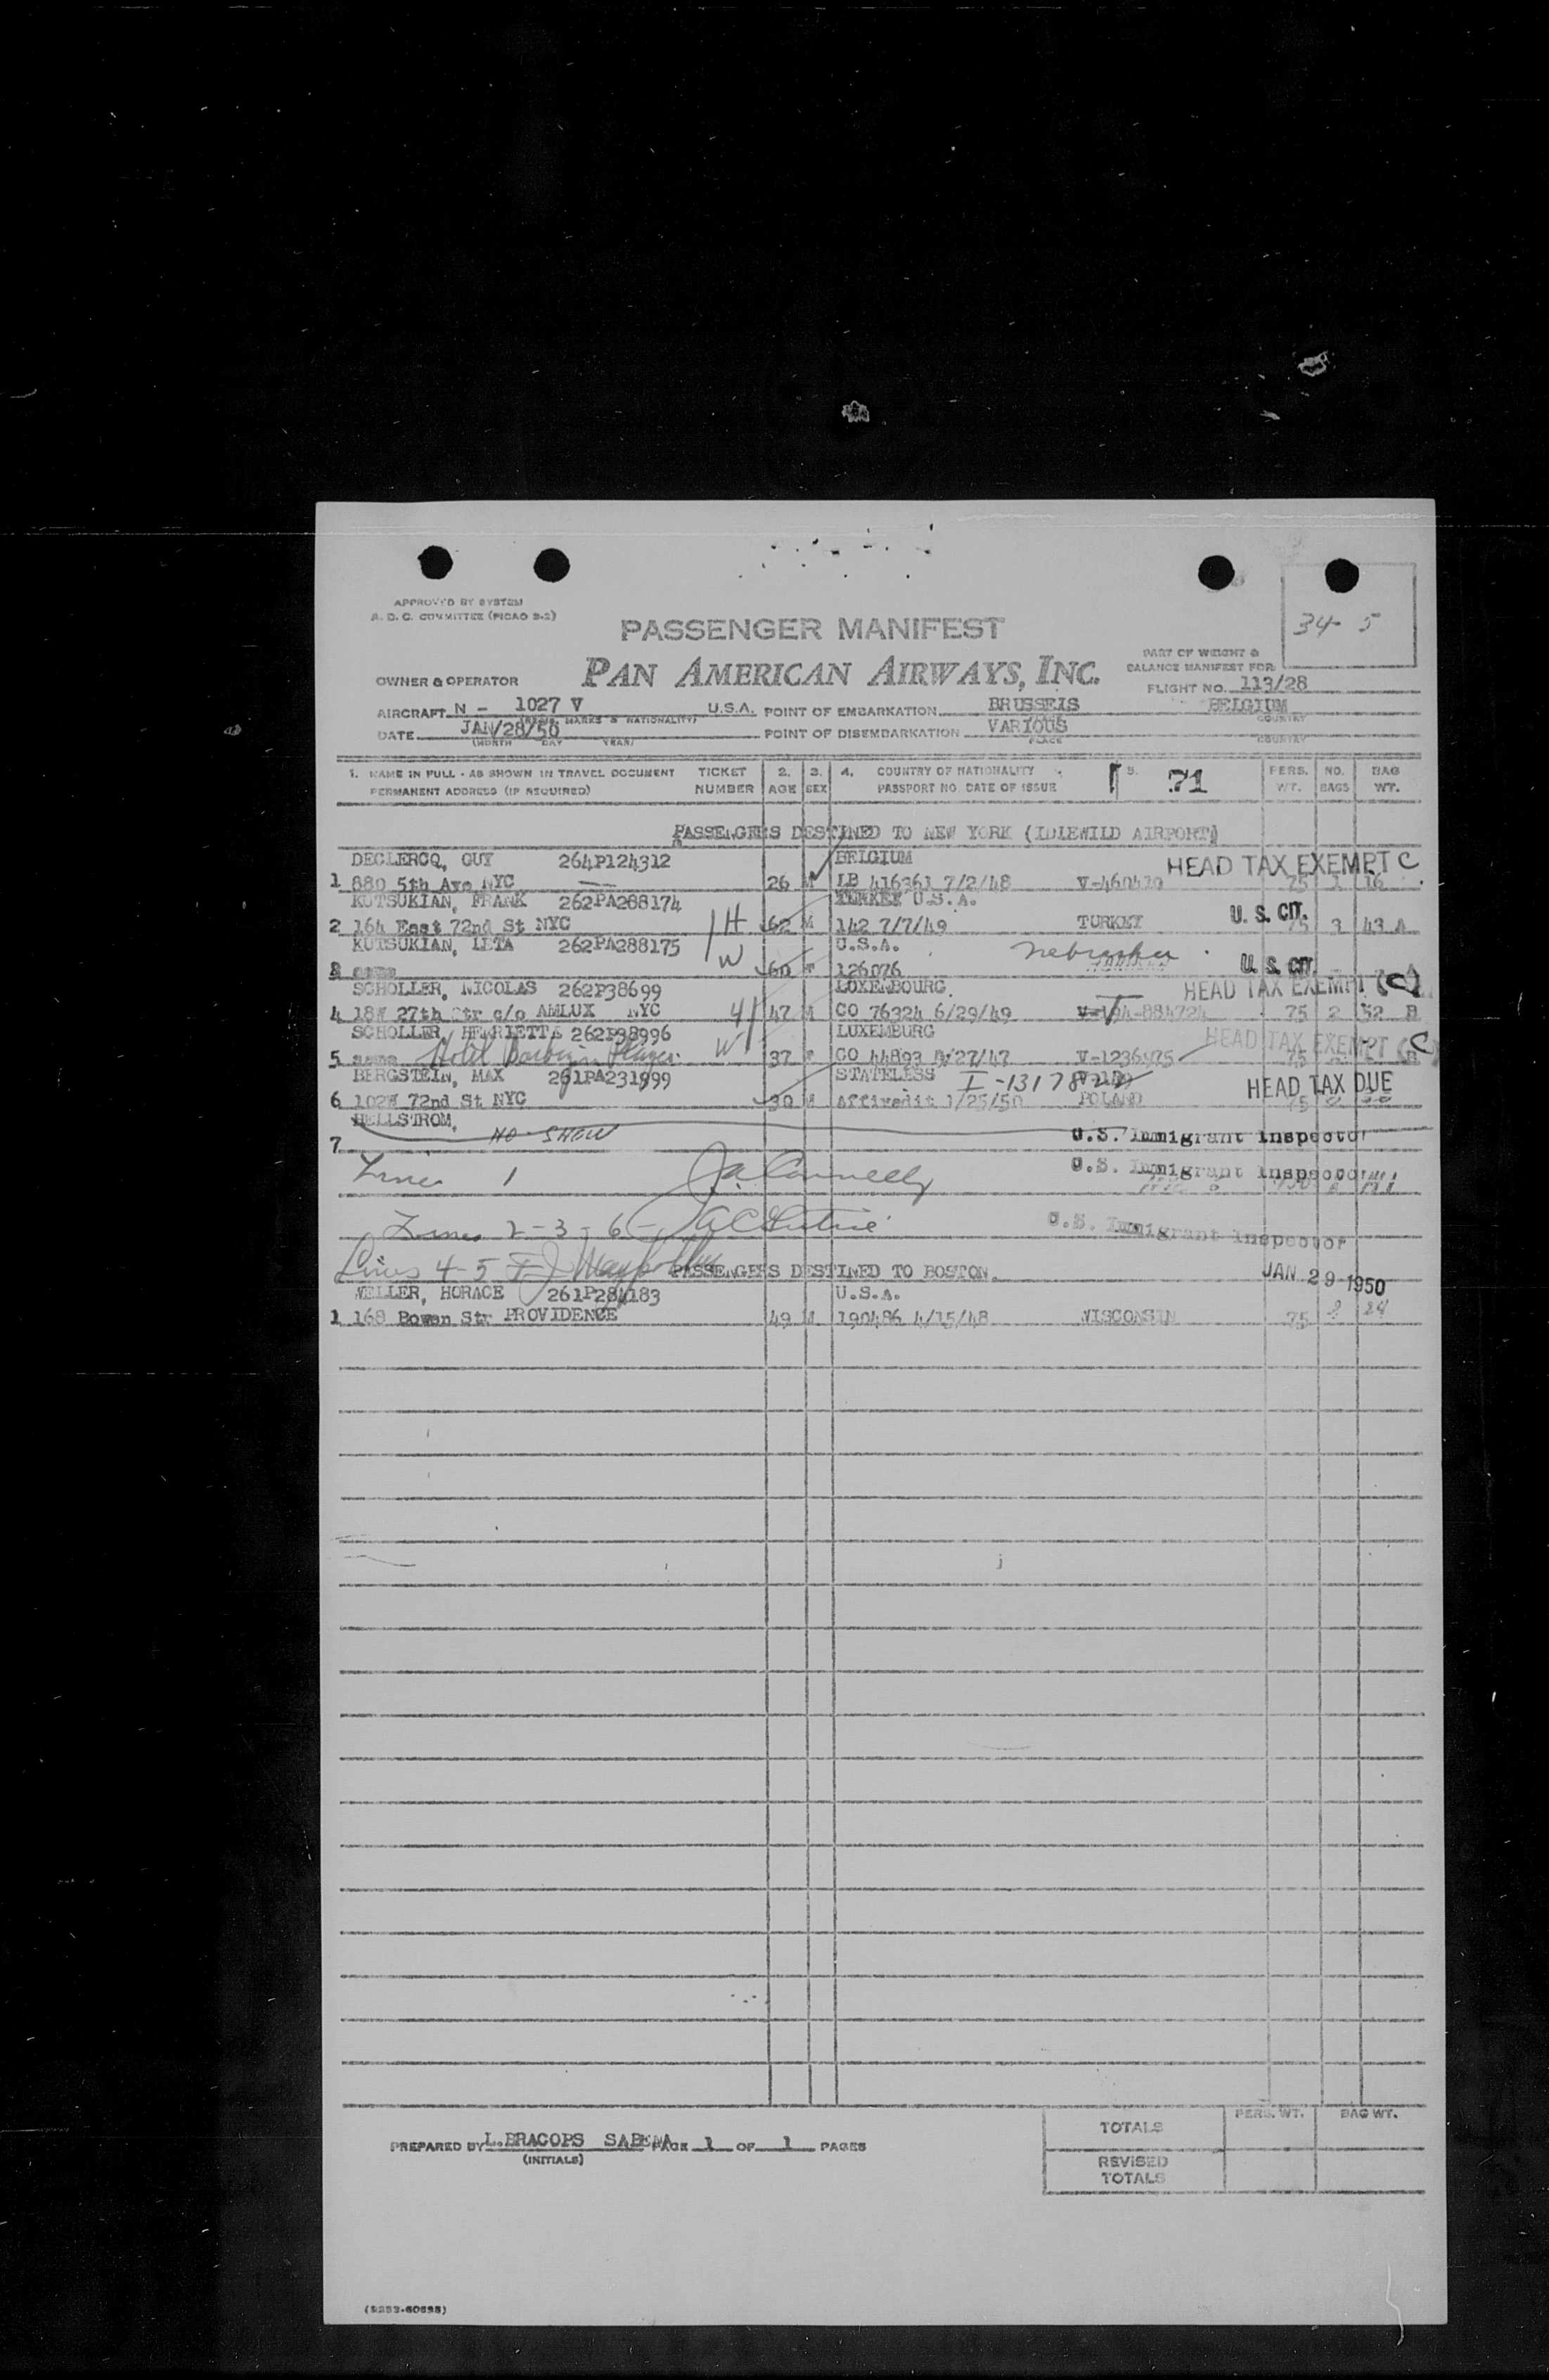 APPROVED BY SYSTEM
A. D. C. COMMITTEE (PICAO 9-2)
34- 5
PASSENGER MANIFEST
PART OF WEIGHT &
BALANCE MANIFEST FOR
OWNER & OPERATOR PAN AMERICAN AIRWAYS, INC.
FLIGHT NO. 113/28
AIRCRAFT N - 1027 V U.S.A. POINT OF EMBARKATION BRUSSELS BELGIUM
(REGIS. MARKS & NATIONALITY) COUNTRY
DATE JAN/28/50 POINT OF DISEMBARKATION VARIOUS
(MONTH DAY YEAR) PLACE COUNTRY
1. NAME IN FULL - AS SHOWN IN TRAVEL DOCUMENT TICKET 2. 3. 4. COUNTRY OF NATIONALITY 5. 71 PERS. NO. BAG
PERMANENT ADDRESS (IF REQUIRED) NUMBER AGE SEX PASSPORT NO. DATE OF ISSUE WT. BAGS WT.
PASSENGERS DESTINED TO NEW YORK (IDLEWILD AIRPORT)
DECLERCQ, GUY 264P124312 BELGIUM HEAD TAX EXEMPT C
1 880 5th Ave NYC 26 M LB 416361 7/2/48 75 1 16
KUTSUKIAN, FRANK 262PA288174 TURKEY U.S.A.
2 164 East 72nd St NYC H 62 M 142 7/7/49 TURKEY U. S. CIT. 75 3 43 A
KUTSUKIAN, LETA 262PA288175 W U.S.A. Nebraska
3 same 60 F 126076 U. S. CIT.
SCHOLLER, NICOLAS 262P38699 LUXEMBOURG HEAD TAX EXEMPT (C)
4 18W 27th Str c/o AMLUX NYC 47 M CO 76324 6/29/49 75 2 52 B
SCHOLLER, HENRIETTE 262P38996 LUXEMBURG HEAD TAX EXEMPT (C)
5 same Hotel Barbizon Plaza W 37 F CO 44893 /27/47 V-1236975
BERGSTEIN, MAX 261PA231999 STATELESS
6 102W 72nd St NYC 30 M Affivedit 1/25/50 POLAND HEAD TAX DUE
HELLSTROM,
7 NO-SHOW U.S. Immigrant Inspector
Line 1 J.A. Connelly U.S. Immigrant Inspector
Lines 2-3-6- U.S. Immigrant Inspector
Lines 4-5 PASSENGERS DESTINED TO BOSTON. JAN 29 1950
WELLER, HORACE 261P284183 U.S.A.
1 168 Bowen Str PROVIDENCE 49 M 190486 4/15/48 WISCONSIN 75 2 24
TOTALS PERS. WT. BAG WT.
PREPARED BY L.BRACOPS SABENA PAGE 1 OF 1 PAGES
(INITIALS)
REVISED
TOTALS